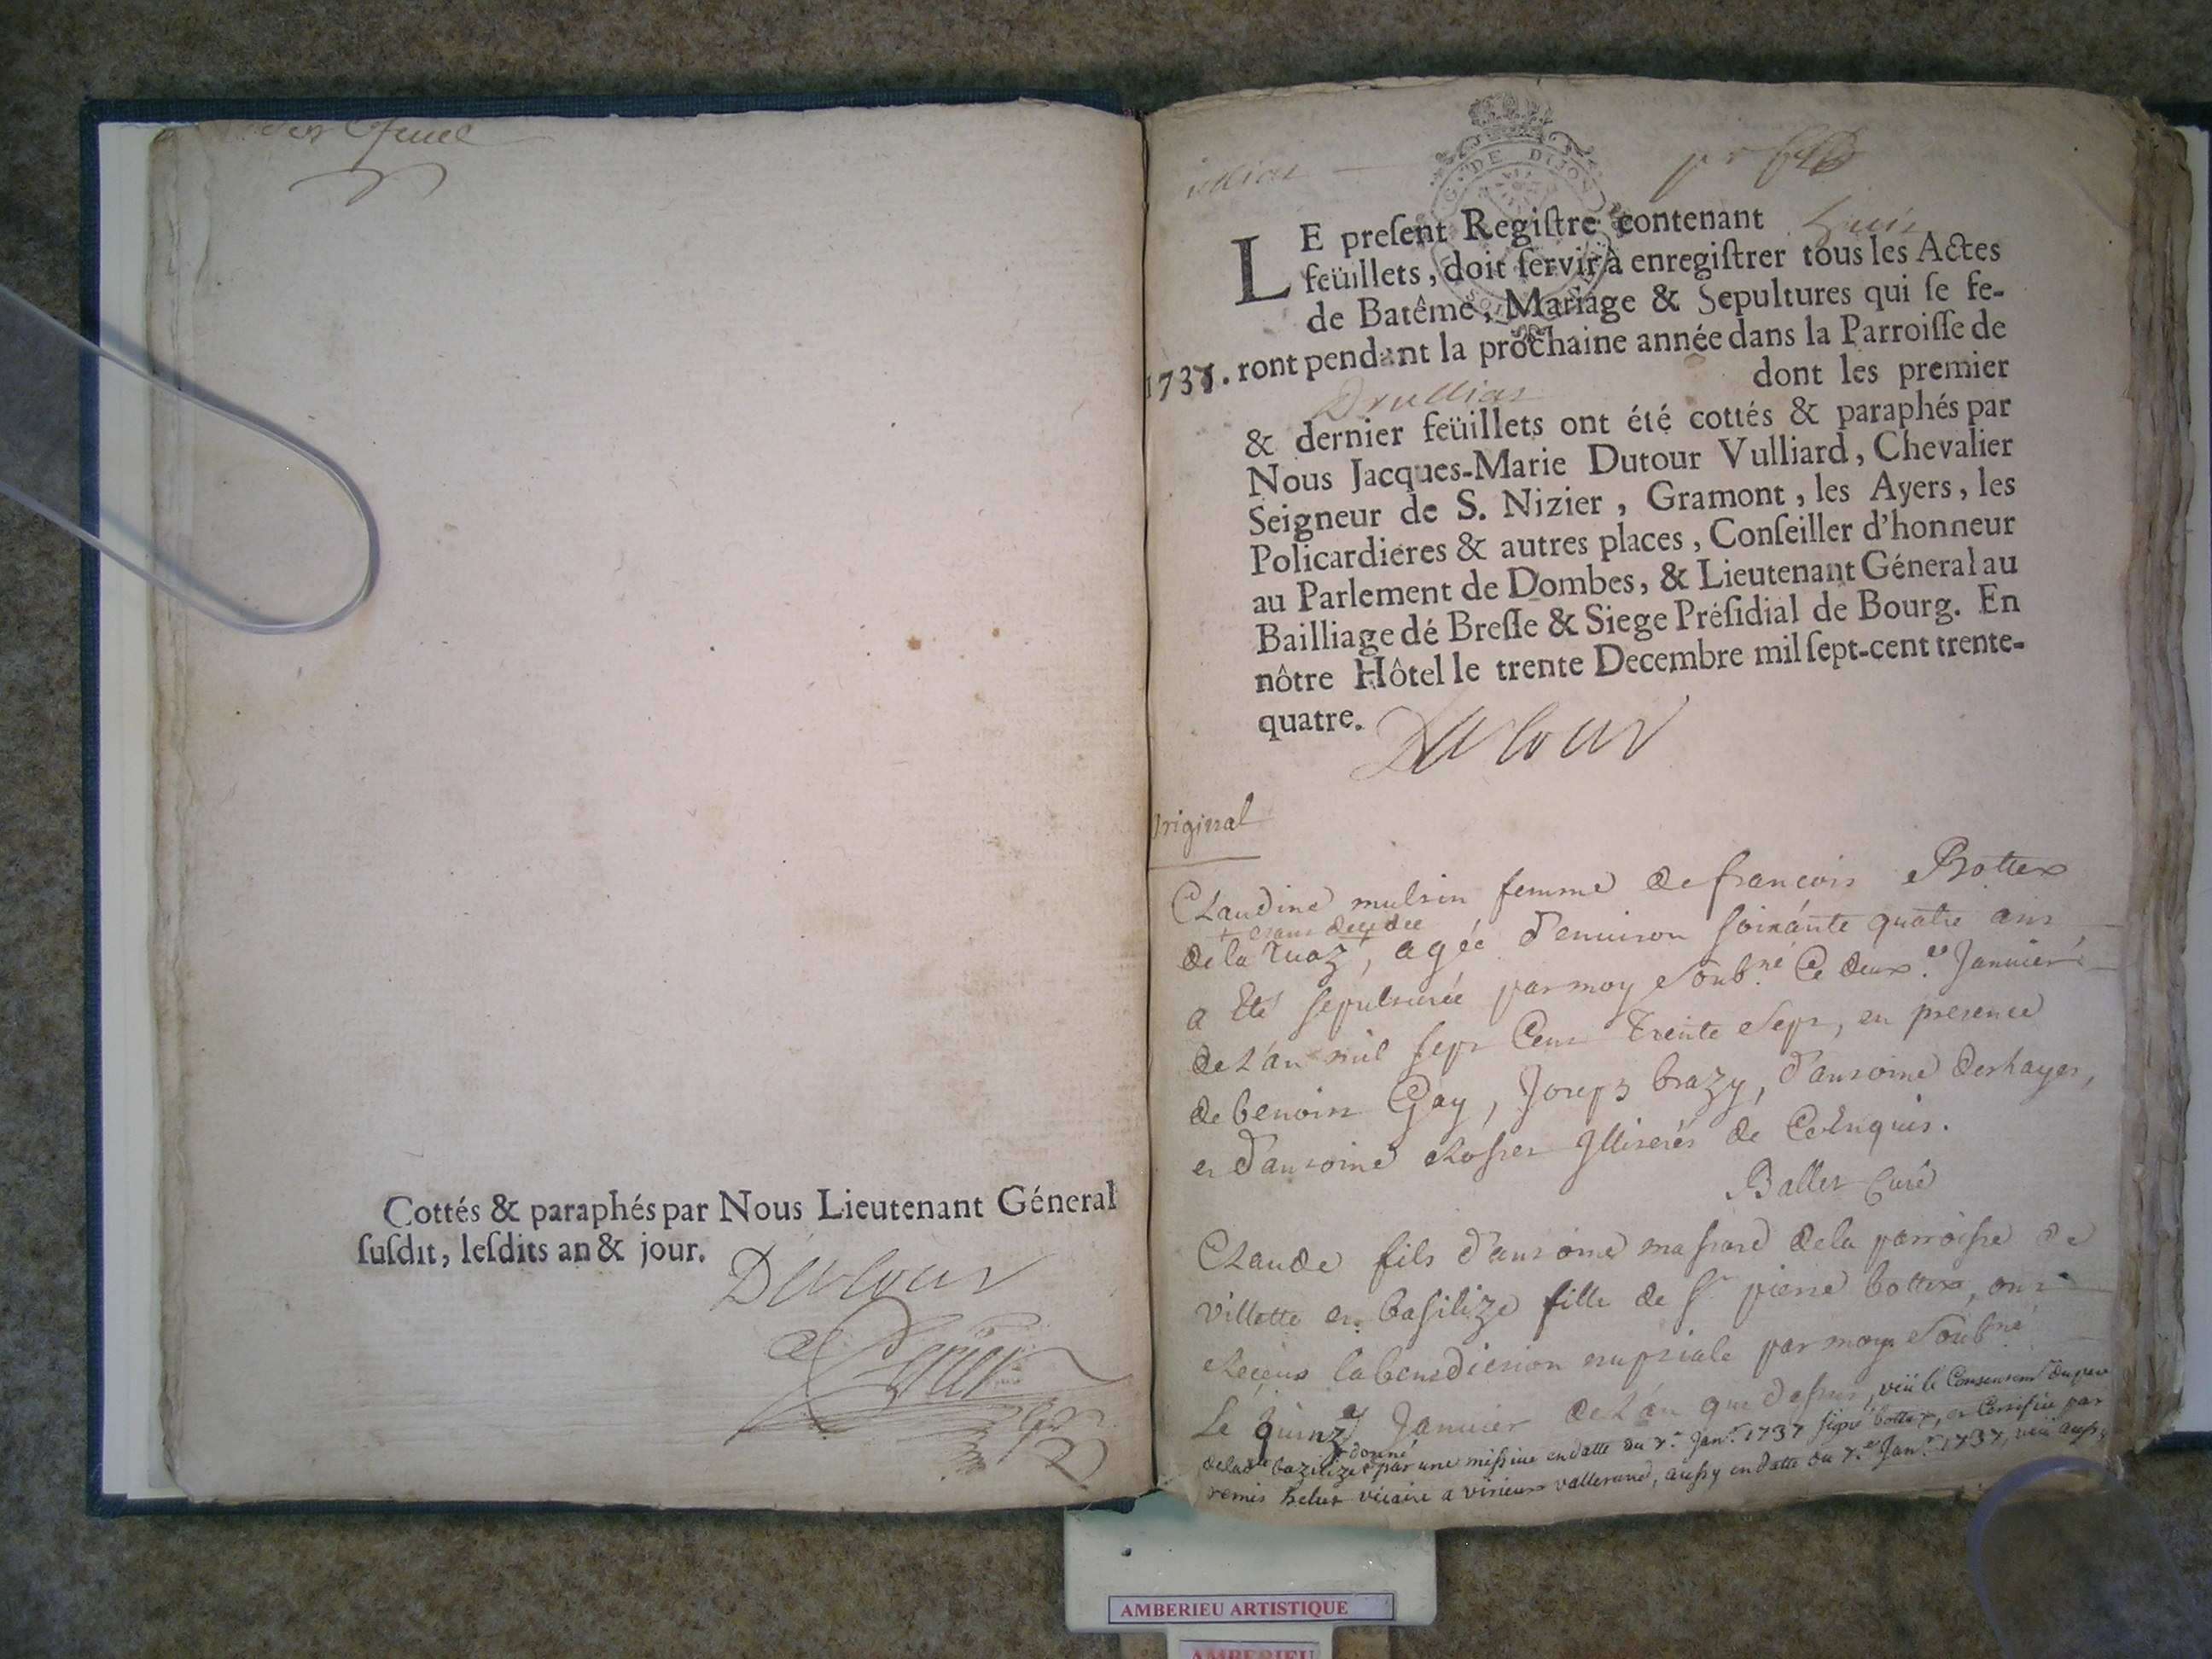 Cottés & paraphés par Nous Lieutenant Géneral
ſuſdit, leſdits an & jour.
Dutour
G. DE DIJON
LE preſent Regiſtre contenant huit
feüillets, doit ſervir à enregiſtrer tous les Actes
de Batême, Mariage & Sepultures qui ſe fe-
ront pendant la prochaine année dans la Parroiſſe de
Druillias dont les premier
& dernier feüillets ont été cottés & paraphés par
Nous Jacques-Marie Dutour Vulliard, Chevalier
Seigneur de S. Nizier, Gramont, les Ayers, les
Policardieres & autres places, Conſeiller d'honneur
au Parlement de Dombes, & Lieutenant Géneral au
Bailliage dé Breſſe & Siege Préſidial de Bourg. En
nôtre Hôtel le trente Decembre mil ſept-cent trente-
quatre. Dutour
original
Claudine femme de françois Bottex
de la ruaz, agée d'enuiron soixante quatre ans
a Eté sepulturée par moy Soubné Ce deuxe Januier
de L'an mil sept Cent Trente Sept, en presence
de benoit Gay, Joseph brazy, d'antoine deshayes,
et d'antoine Rosset Illiterés de
Ballet Curé
Claude fils d'antoine massard de la parroisse de
villette et basilize fille de Sr pierre bottex, ont
Receus la benediction nuptiale par moy Soubné
Le quinze Januier de L'an que dessus, veü le Consentemt du pere
de lade bazilize donné par une missiue en datte du 7e Janr 1737 signé bottex, et Certifiée par
remis vicaire a virieux, aussy en datte du 7e Janr 1737, veü aussy
AMBERIEU ARTISTIQUE
AMBERIEU